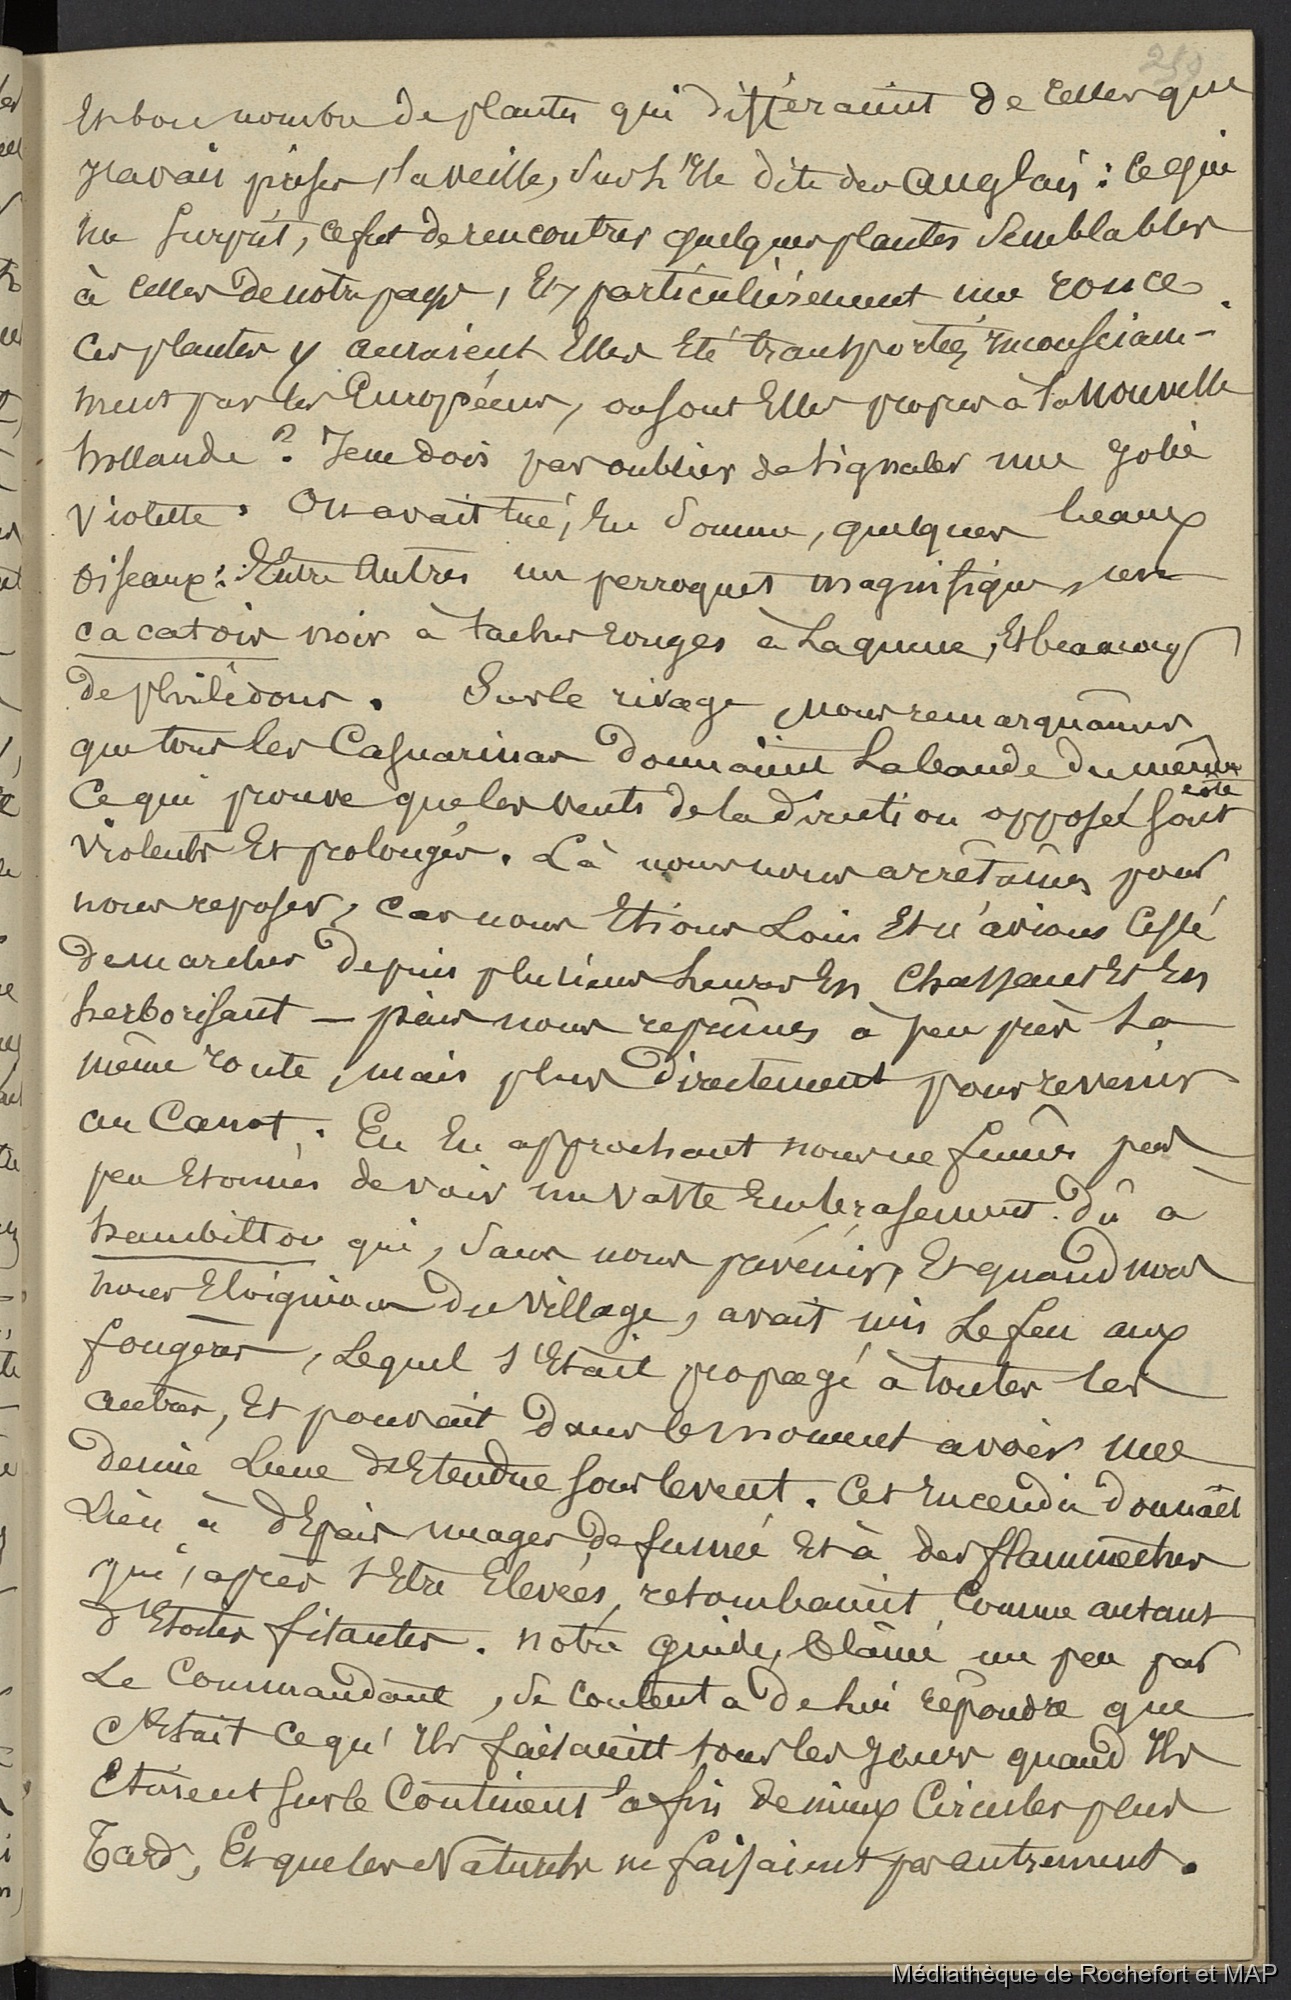 Et bon nombre de plantes qui différaient de celles que
j'avais prises, la veille, sur l'Ile dite des anglais : Ce qui
me surprit, ce fut de rencontrer quelques plantes semblables
à celles de notre pays, Et particulièrement une ronce.
Ces plantes y auraient Elles Eté transportées inconsciam-
ment par les Européens, ou sont Elles propres à la Nouvelle
hollande ? Je ne dois pas oublier de signaler une jolie
violette. On avait tué, En somme, quelques beaux
oiseaux : Entre autres un perroquet magnifique, un
cacatois noir à taches rouges à la queue, Et beaucoup
de philédons. Sur le rivage, nous remarquâmes
que tous les Casuarinas donnaient la bande du même
côté
Ce qui prouve que les vents de la direction opposée sont
violents Et prolongés. Là nous nous arrêtâmes pour
nous reposer, car nous Etions Loin Et n'avions Cessé
de marcher depuis plusieurs heures En chassant Et En
herborisant – puis nous reprîmes à peu près la
même route, mais plus directement pour revenir
au Canot. En En approchant nous ne fûmes pas
peu Etonnés de voir un vaste Embrasement dû à
hambilton qui, sans nous prévenir, Et quand nous
nous Eloignions du village, avait mis le feu aux
fougères, Lequel s'Etait propagé à toutes les
autres, Et pouvait dans le moment avoir une
demie Lieue d'Etendue sous le vent. Cet Incendie donnait
Lieu à d'Epais nuages de fumée Et à des flammèches
qui, après s'Etre Elevées, retombaient, Comme autant
d'Etoiles filantes. Notre guide, blâmé un peu par
Le Commandant, se contenta de lui répondre que
C'Etait Ce qu'Ils faisaient tous les jours quand Ils
Etaient sur le Continent afin de mieux Circuler plus
Tard, Et que les Naturels ne faisaient pas autrement.
Médiathèque de Rochefort et MAP